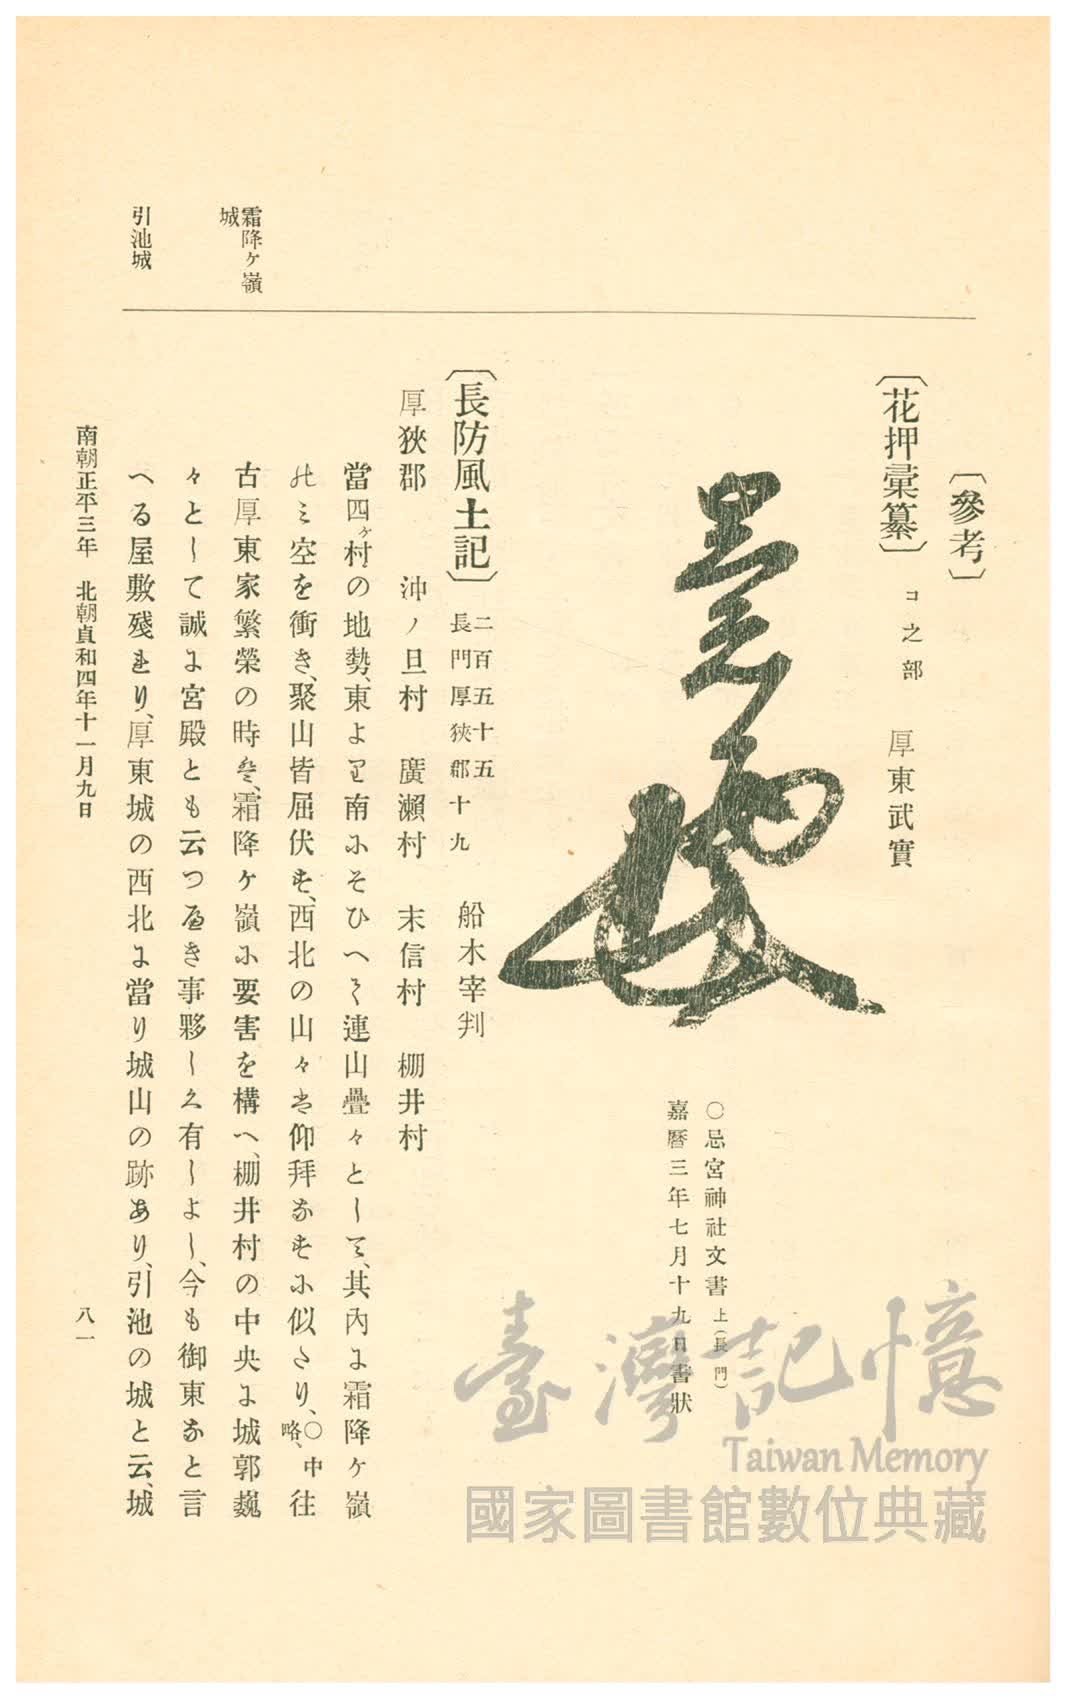 〔參考〕
〔花押彙纂〕 コ之部 厚東武實
〇忌宮神社文書 上(長門)
嘉曆三年七月十九日書狀
〔長防風土記〕 二百五十五 長門厚狹郡十九 船木宰判
厚狹郡 沖ノ旦村 廣瀨村 末信村 棚井村
當四ヶ村の地勢、東よ𛃶南にそひへて連山疊々として、其內に霜降ヶ嶺
のミ空を衝き、聚山皆屈伏す、西北の山々も仰拜なすに似たり、〇中略、往
古厚東家繁榮の時も、霜降ヶ嶺に要害を構へ、棚井村の中央に城郭巍
々として誠に宮殿とも云つへき事夥しく有しよし、今も御東なと言
へる屋敷殘れり、厚東城の西北に當り城山の跡あり、引池の城と云、城
霜降ヶ嶺城
引池城
南朝正平三年 北朝貞和四年十一月九日
八一
臺灣記憶
Taiwan Memory
國家圖書館數位典藏